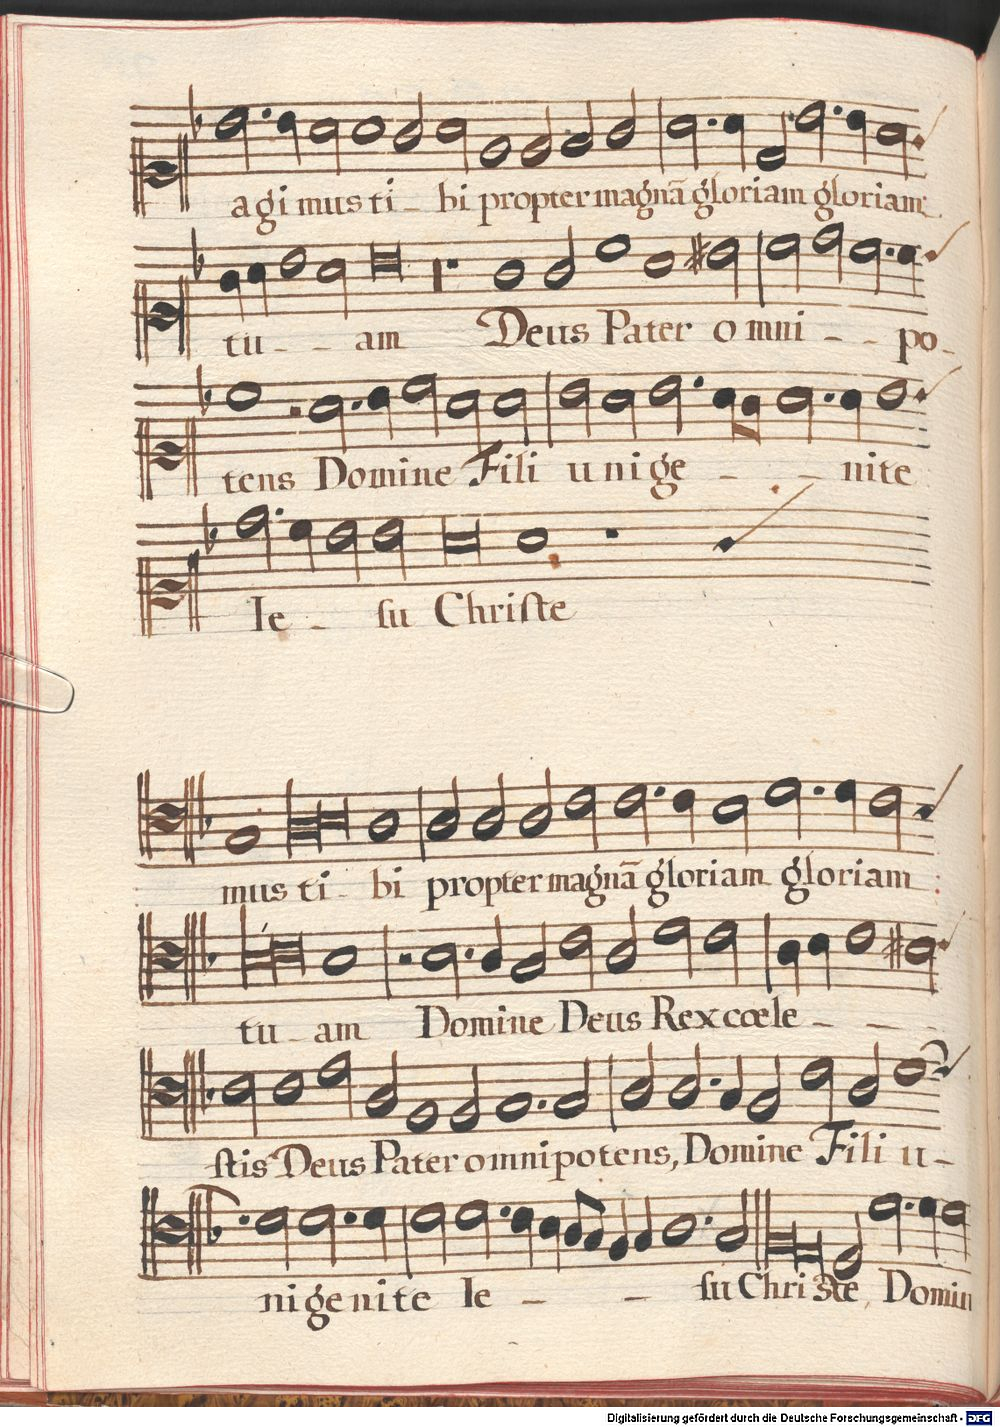 agi mus ti - bi propter magnã gloriam gloriam:
tu - - am Deus Pater omni - - po-
tens Domine Fili unige - - - nite
Ie - su Christe
mus ti - bi propter magnã gloriam gloriam :
tu - am Domine Deus Rex cœle - - -
stis Deus Pater omnipotens, Domine Fili u-
nigenite Ie - - su Christe, Domin
Digitalisierung gefördert durch die Deutsche Forschungsgemeinschaft - DFG